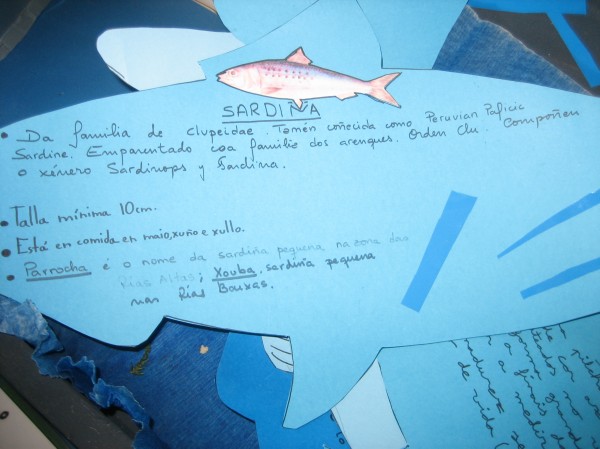 SARDIÑA
• Da familia de clupeidae. Tamén coñecida como Peruvian Pacific
Sardine. Emparentado coa familia dos arenques. Orden Clu. Compoñen
o xénero Sardinops y Sardina.
• Talla mínima 10cm.
• Está en comida en maio, xuño e xullo.
• Parrocha é o nome da sardiña pequena na zona das
Rías Altas; Xouba, sardiña pequena
nas Rías Baixas.